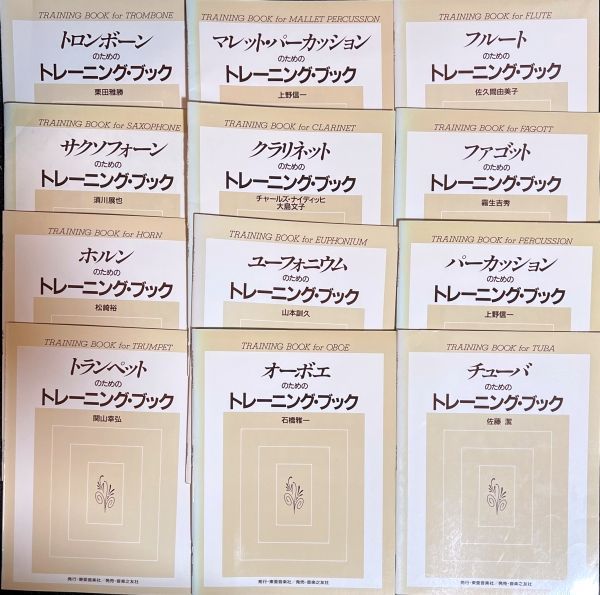 TRAINING BOOK for TROMBONE
トロンボーン
のための
トレーニング・ブック
栗田雅勝
TRAINING BOOK for MALLET PERCUSSION
マレット・パーカッション
のための
トレーニング・ブック
上野信一
TRAINING BOOK for FLUTE
フルート
のための
トレーニング・ブック
佐久間由美子
TRAINING BOOK for SAXOPHONE
サクソフォーン
のための
トレーニング・ブック
須川展也
TRAINING BOOK for CLARINET
クラリネット
のための
トレーニング・ブック
チャールズ・ナイディッヒ
大島文子
TRAINING BOOK for FAGOTT
ファゴット
のための
トレーニング・ブック
霧生吉秀
TRAINING BOOK for HORN
ホルン
のための
トレーニング・ブック
松﨑裕
TRAINING BOOK for EUPHONIUM
ユーフォニウム
のための
トレーニング・ブック
山本訓久
TRAINING BOOK for PERCUSSION
パーカッション
のための
トレーニング・ブック
上野信一
TRAINING BOOK for TRUMPET
トランペット
のための
トレーニング・ブック
関山幸弘
発行・東亜音楽社/発売・音楽之友社
TRAINING BOOK for OBOE
オーボエ
のための
トレーニング・ブック
石橋雅一
発行・東亜音楽社/発売・音楽之友社
TRAINING BOOK for TUBA
チューバ
のための
トレーニング・ブック
佐藤 潔
発行・東亜音楽社/発売・音楽之友社